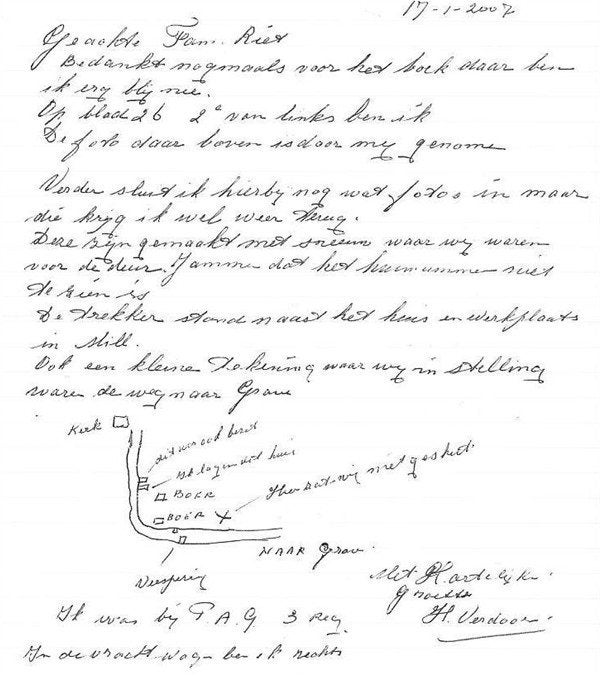 17-1-2007
Geachte Fam. Riet
Bedankt nogmaals voor het boek daar ben
ik erg blij mee.
Op blad 26 2e van links ben ik
De foto daar boven is door mij genome
Verder sluit ik hierby nog wat foto's in maar
die kryg ik wel weer terug.
Deze zijn gemaakt met sneeuw waar wy waren
voor de deur. Jammer dat het huisnummer niet
te zien is
De trekker stond naast het huis en werkplaats
in Mill.
Ook een kleine tekening waar wy in stelling
waren de weg naar Grave
Kerk
dit was ook bezet
dat huis
BOER
BOER
niet
NAAR Grave.
Met Hartelijke
Groeten
H. Verdoor
Ik was bij P.A.G. 3 Reg
In de vracht wagen ben ik rechts